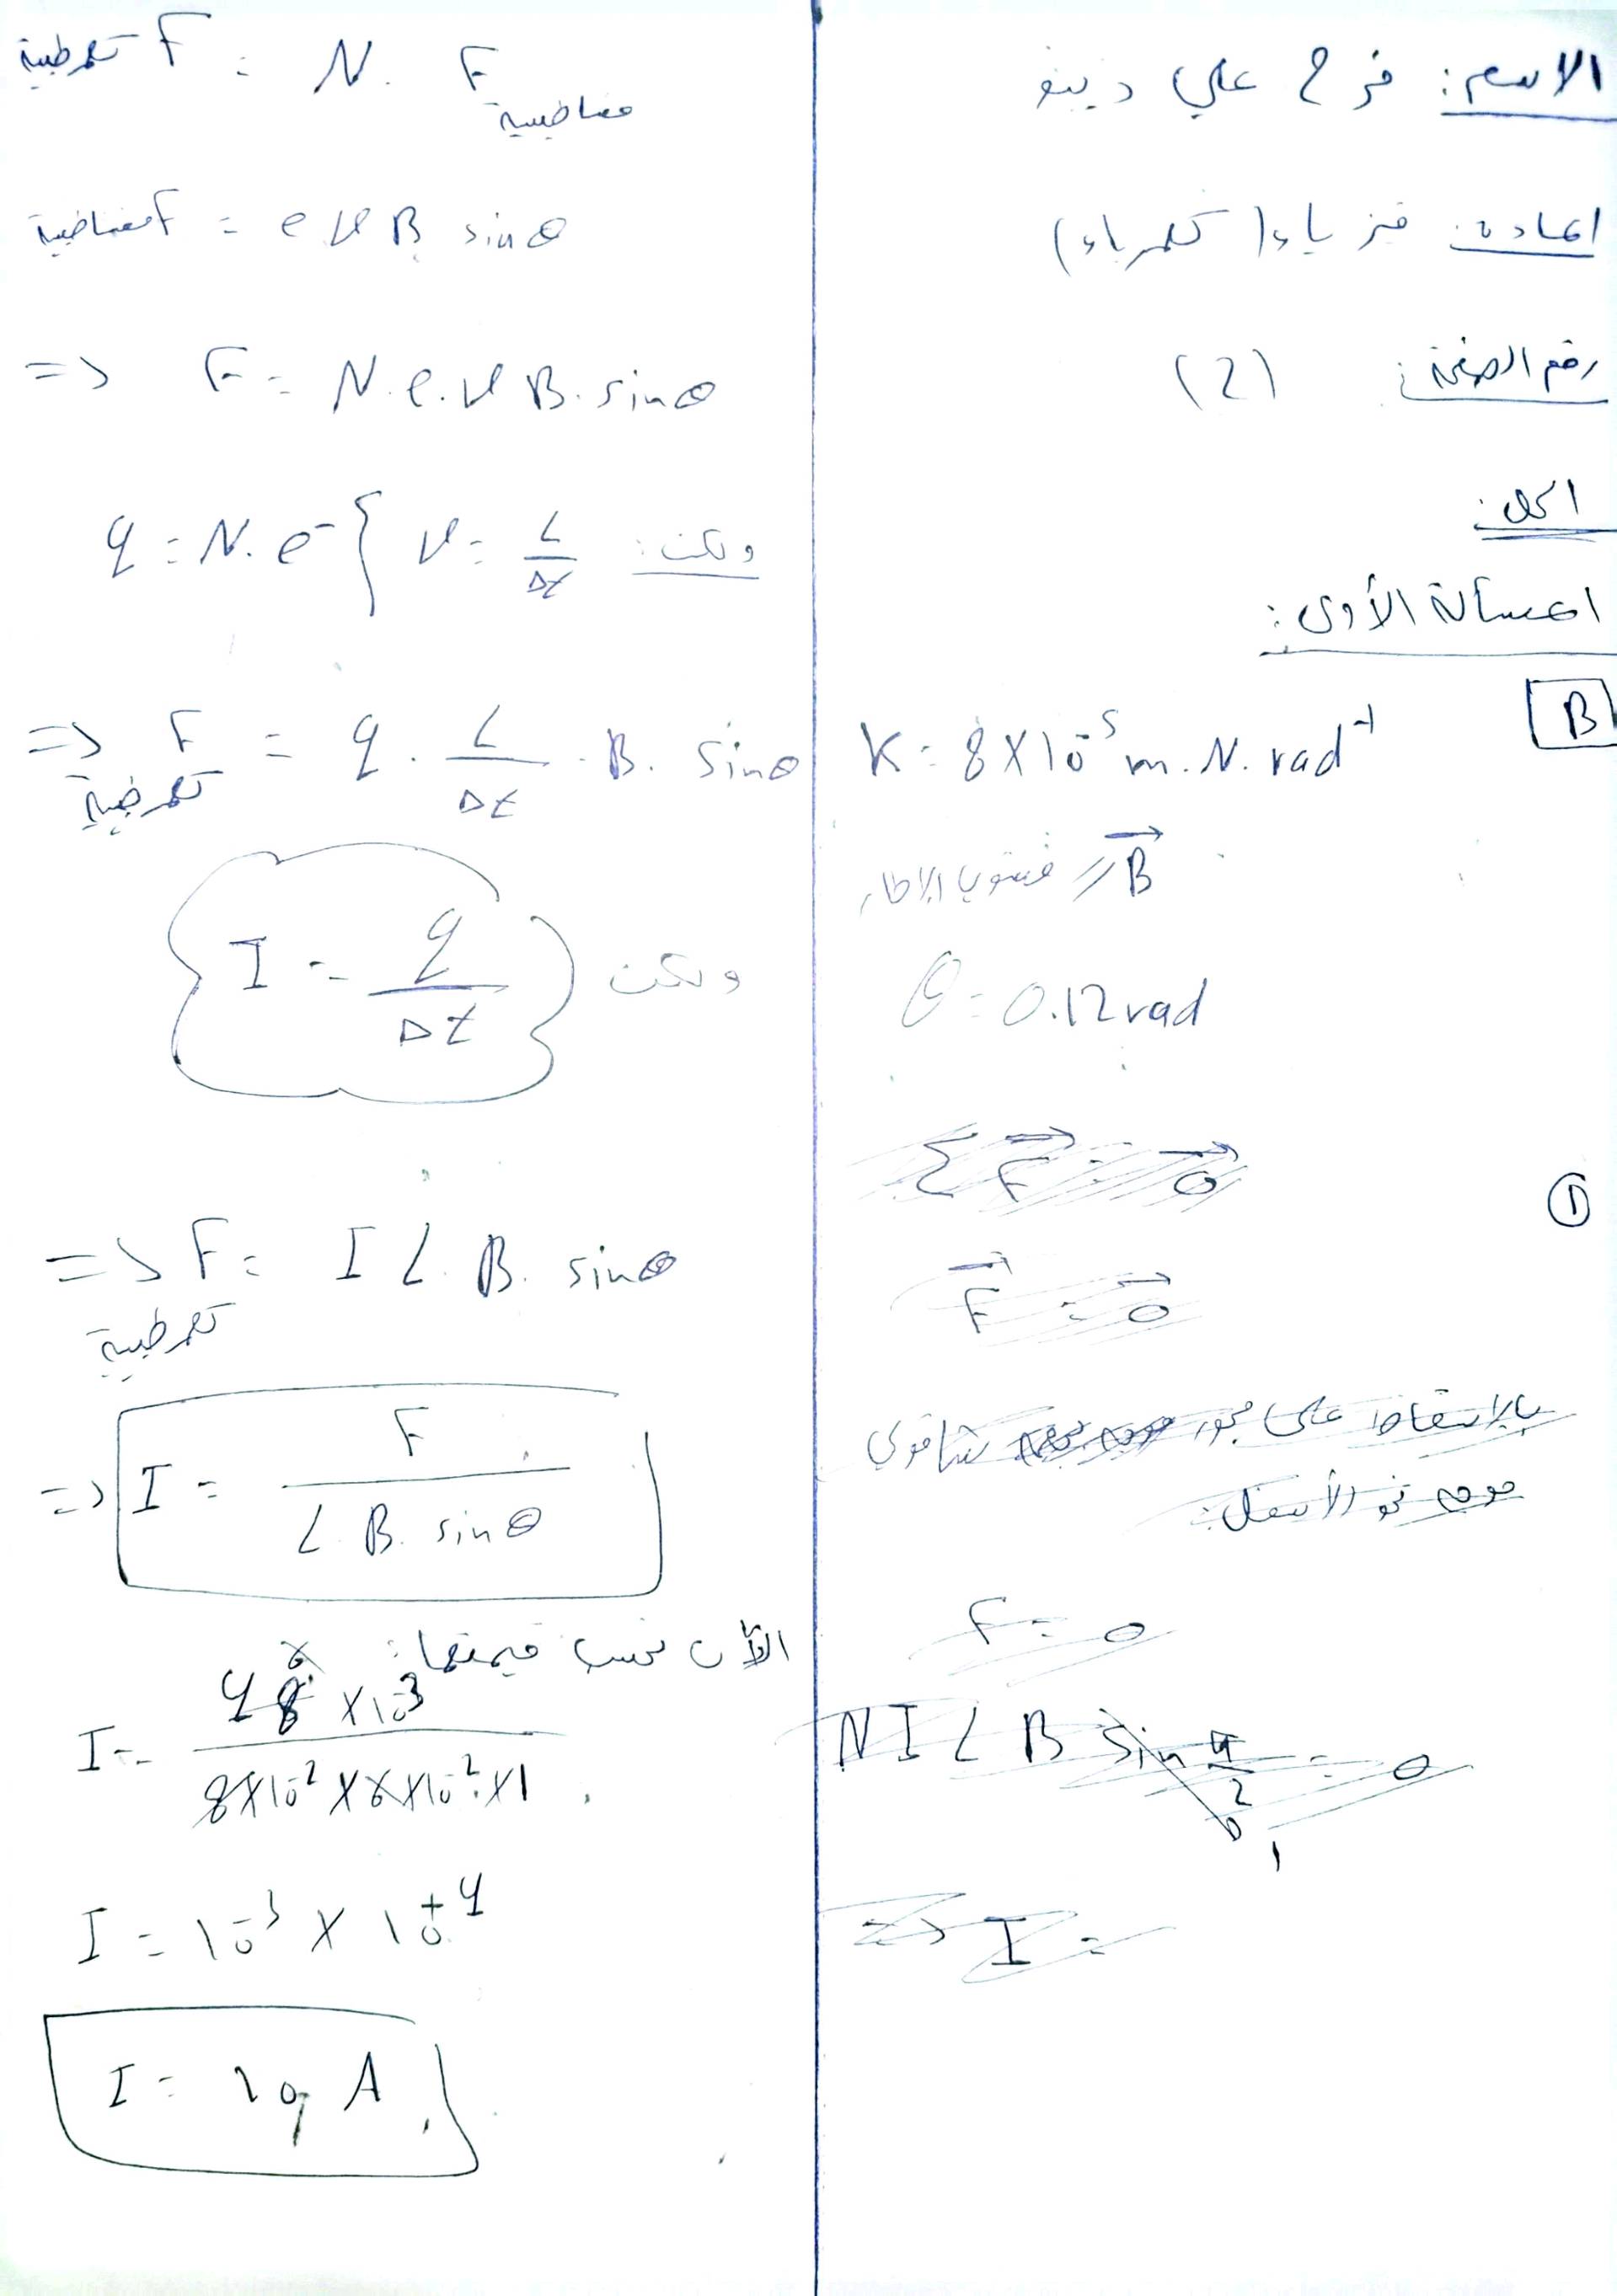 الاسم: فرح علي ديبو
المادة: فيزياء (كهرباء)
رقم الصفحة: (2)
الحل:
المسألة الأولى:
B
K = 8 × 10^-5 m.N.rad^-1
B⃗ // مستويا الإطار
θ = 0.12 rad
①
Σ F⃗ = 0⃗
F⃗ = 0⃗
بالإسقاط على محور شاقولي
موجه نحو الأسفل:
F = 0
N I L B sin π/2 = 0
1
=> I =
F كهرطيسية = N. F مغناطيسية
F مغناطيسية = e v B sin θ
=> F = N. e. v B. sin θ
ولكن: v = L/Δt } q = N. e^-
=> F كهرطيسية = q . L/Δt . B. sin θ
ولكن I = q/Δt
=> F كهرطيسية = I L. B. sin θ
=> I = F / L. B. sin θ
الآن نحسب قيمتها:
I = 48 × 10^-3 / 8×10^-2 × 6×10^-2 × 1
I = 10^-3 × 10^+4
I = 10 A